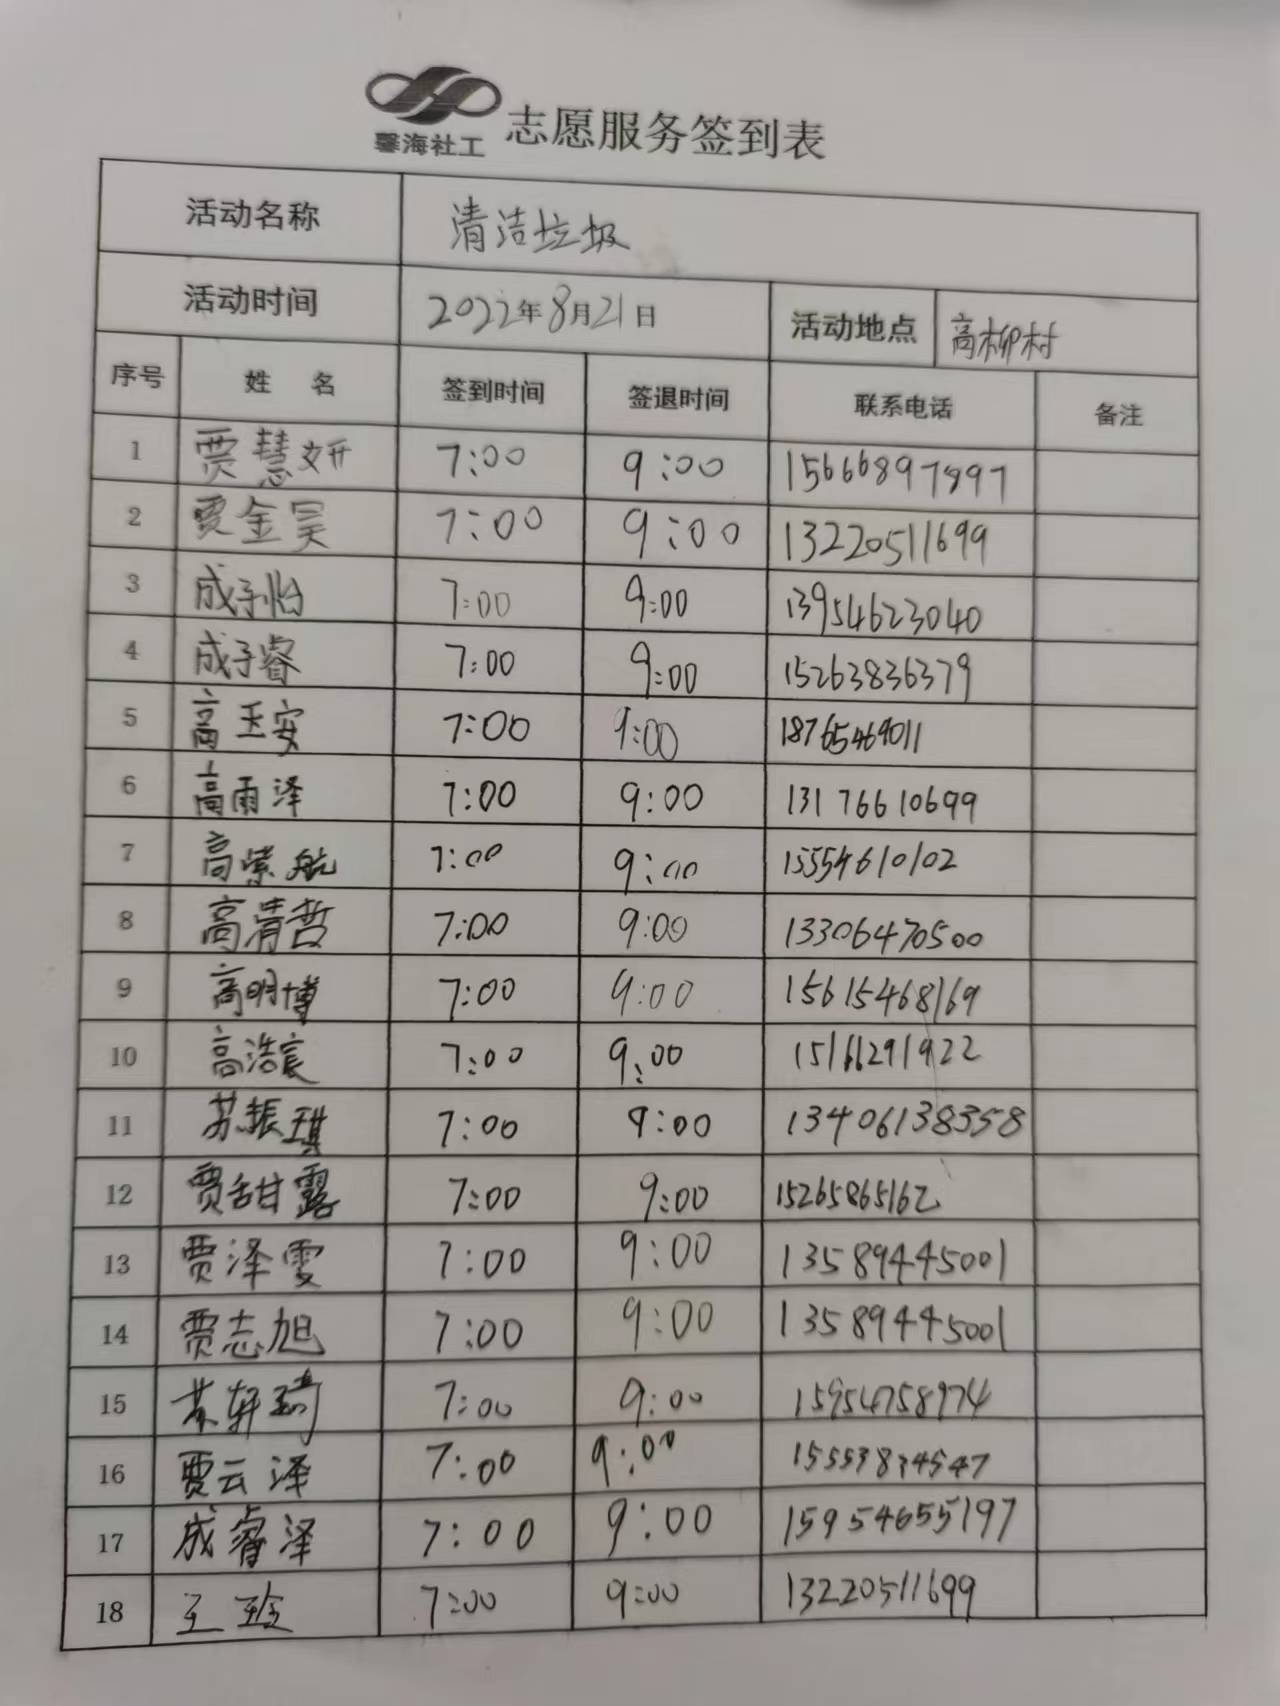 馨海社工 志愿服务签到表
活动名称 清洁垃圾
活动时间 2022年8月21日 活动地点 高柳村
序号 姓 名 签到时间 签退时间 联系电话 备注
1 贾慧妍 7:00 9:00 15666897897
2 贾金昊 7:00 9:00 13220511699
3 成子怡 7:00 9:00 13954623040
4 成子睿 7:00 9:00 15263836379
5 高玉安 7:00 9:00 18765469011
6 高雨泽 7:00 9:00 13176610699
7 高紫航 7:00 9:00 15554610102
8 高清哲 7:00 9:00 13306470500
9 高明博 7:00 9:00 15615468169
10 高浩宸 7:00 9:00 15166291922
11 苏振琪 7:00 9:00 13406138358
12 贾甜露 7:00 9:00 15265865162
13 贾泽雯 7:00 9:00 13589445001
14 贾志旭 7:00 9:00 13589445001
15 苏轩琦 7:00 9:00 15954758974
16 贾云泽 7:00 9:00
17 成睿泽 7:00 9:00 15954655197
18 王玲 7:00 9:00 13220511699